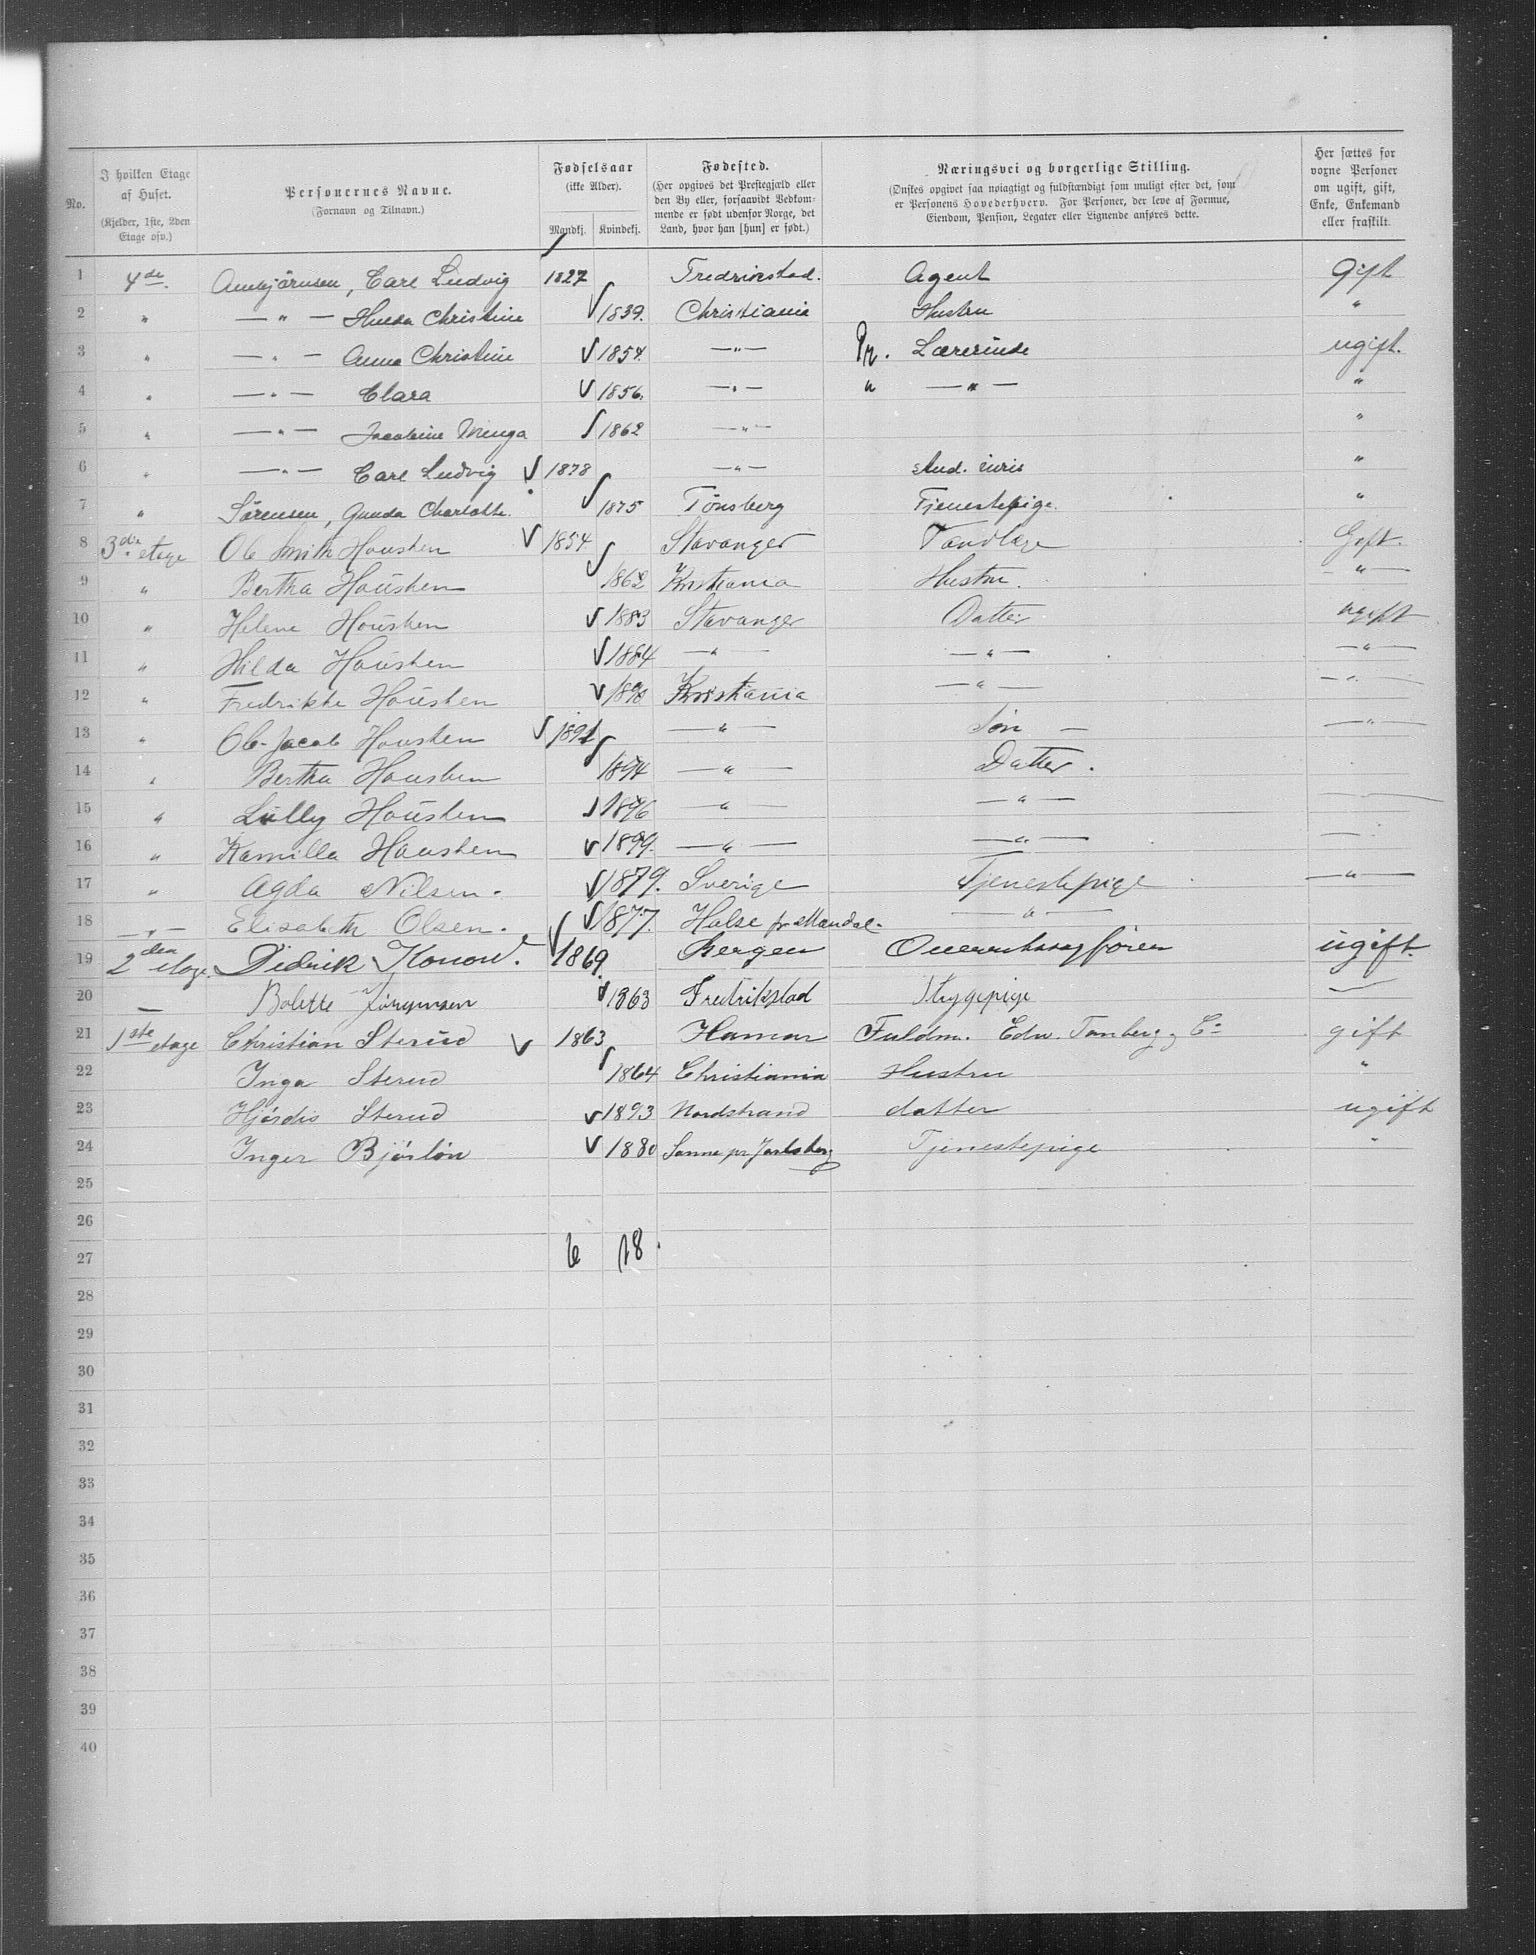 No. I hvilken Etage af Huset. (Kjelder, 1ste, 2den Etage osv.) Personernes Navne. (Fornavn og Tilnavn.) Fødselsaar (ikke Alder). Mandkj. Kvindekj. Fødested. (Her opgives det Prestegjæld eller den By eller, forsaavidt Vedkommende er født udenfor Norge, det Land, hvor han [hun] er født.) Næringsvei og borgerlige Stilling. (Ønskes opgivet saa nøiagtigt og fuldstændigt som muligt efter det, som er Personens Hovederhverv. For Personer, der leve af Formue, Eiendom, Pension, Legater eller Lignende anføres dette. Her sættes for voxne Personer om ugift, gift, Enke, Enkemand eller fraskilt.
1 4de. Carl Ludvig 1827 Fredrikstad. Agent gift
2 " — " — Hulda Christine 1839. Christiania Hustru "
3 " — " — Anna Christine 1854. — " — Pr. Lærerinde ugift.
4 " — " — Clara 1856. — " — " — " — "
5 " — " — Jacobine Minga 1862 — " — "
6 " — " — Carl Ludvig 1878 — " — stud. iuris "
7 " Sørensen, Gunda Charlotte. 1875 Tønsberg Tjenestepige. "
8 3die etage Ole Smith Housken 1854 Stavanger Tandlæge Gift.
9 " Bertha Housken 1862 Kristiania Hustru. — " —
10 " Helene Housken 1883 Stavanger Datter ugift
11 " Hilda Housken 1884 — " — — " — — " —
12 " Fredrikke Housken 1890 Kristiania — " — — " —
13 " Ole Jacob Housken 1892 — " — Søn — — " —
14 " Bertha Housken 1894 — " — Datter.
15 " Lully Housken 1896 — " — — " —
16 " Kamilla Housken 1899. — " — — " —
17 " Agda Nilsen. 1879. Sverige Tjenestepige — " —
18 — " — Elisabeth Olsen. 1877. Halse pr Mandal. — " —
19 2den etage. Didrik Konow. 1869. Bergen Overretssagfører ugift.
20 — Bolette Jørgensen 1863 Fredrikstad —
21 1ste etage Christian Sterud 1863 Hamar Fuldm. Edw. Tanberg & Co gift
22 Inga Sterud 1864 Christiania Hustru "
23 Hjørdis Sterud 1893 Nordstrand datter ugift
24 Inger 1880 pr Jarlsberg Tjenestepige "
25
26
27 6 18.
28
29
30
31
32
33
34
35
36
37
38
39
40